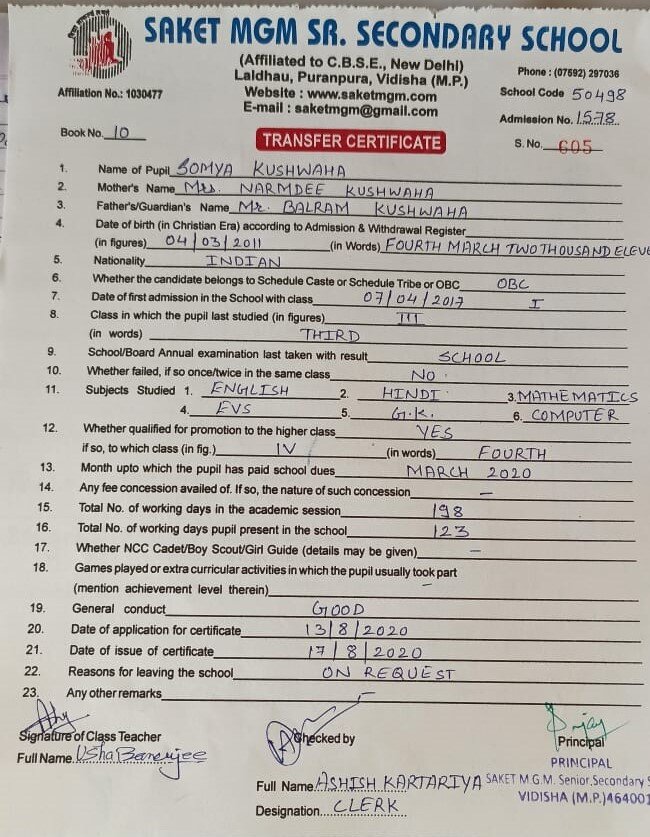 SAKET MGM SR. SECONDARY SCHOOL
(Affiliated to C.B.S.E., New Delhi)
Laldhau, Puranpura, Vidisha (M.P.)
Phone : (07592) 297036
Affiliation No.: 1030477
Website : www.saketmgm.com
School Code 50498
E-mail : saketmgm@gmail.com
Admission No. 1578
Book No. 10
TRANSFER CERTIFICATE
S. No. 605
1. Name of Pupil SOMYA KUSHWAHA
2. Mother's Name Mrs. NARMDEE KUSHWAHA
3. Father's/Guardian's Name Mr. BALRAM KUSHWAHA
4. Date of birth (in Christian Era) according to Admission & Withdrawal Register
(in figures) 04/03/2011 (in Words) FOURTH MARCH TWO THOUSAND ELEVE
5. Nationality INDIAN
6. Whether the candidate belongs to Schedule Caste or Schedule Tribe or OBC OBC
7. Date of first admission in the School with class 07/04/2017 I
8. Class in which the pupil last studied (in figures) III
(in words) THIRD
9. School/Board Annual examination last taken with result SCHOOL
10. Whether failed, if so once/twice in the same class NO.
11. Subjects Studied 1. ENGLISH 2. HINDI 3. MATHEMATICS
4. EVS 5. G.K. 6. COMPUTER
12. Whether qualified for promotion to the higher class YES
if so, to which class (in fig.) IV (in words) FOURTH
13. Month upto which the pupil has paid school dues MARCH 2020
14. Any fee concession availed of. If so, the nature of such concession –
15. Total No. of working days in the academic session 198
16. Total No. of working days pupil present in the school 123
17. Whether NCC Cadet/Boy Scout/Girl Guide (details may be given) –
18. Games played or extra curricular activities in which the pupil usually took part
(mention achievement level therein) –
19. General conduct GOOD
20. Date of application for certificate 13/8/2020
21. Date of issue of certificate 17/8/2020
22. Reasons for leaving the school ON REQUEST
23. Any other remarks –
Signature of Class Teacher
Checked by
Principal
Full Name Usha Banerjee
PRINCIPAL
Full Name: ASHISH KARTARIYA
SAKET M.G.M. Senior. Secondary S
Designation: CLERK
VIDISHA (M.P.) 464001